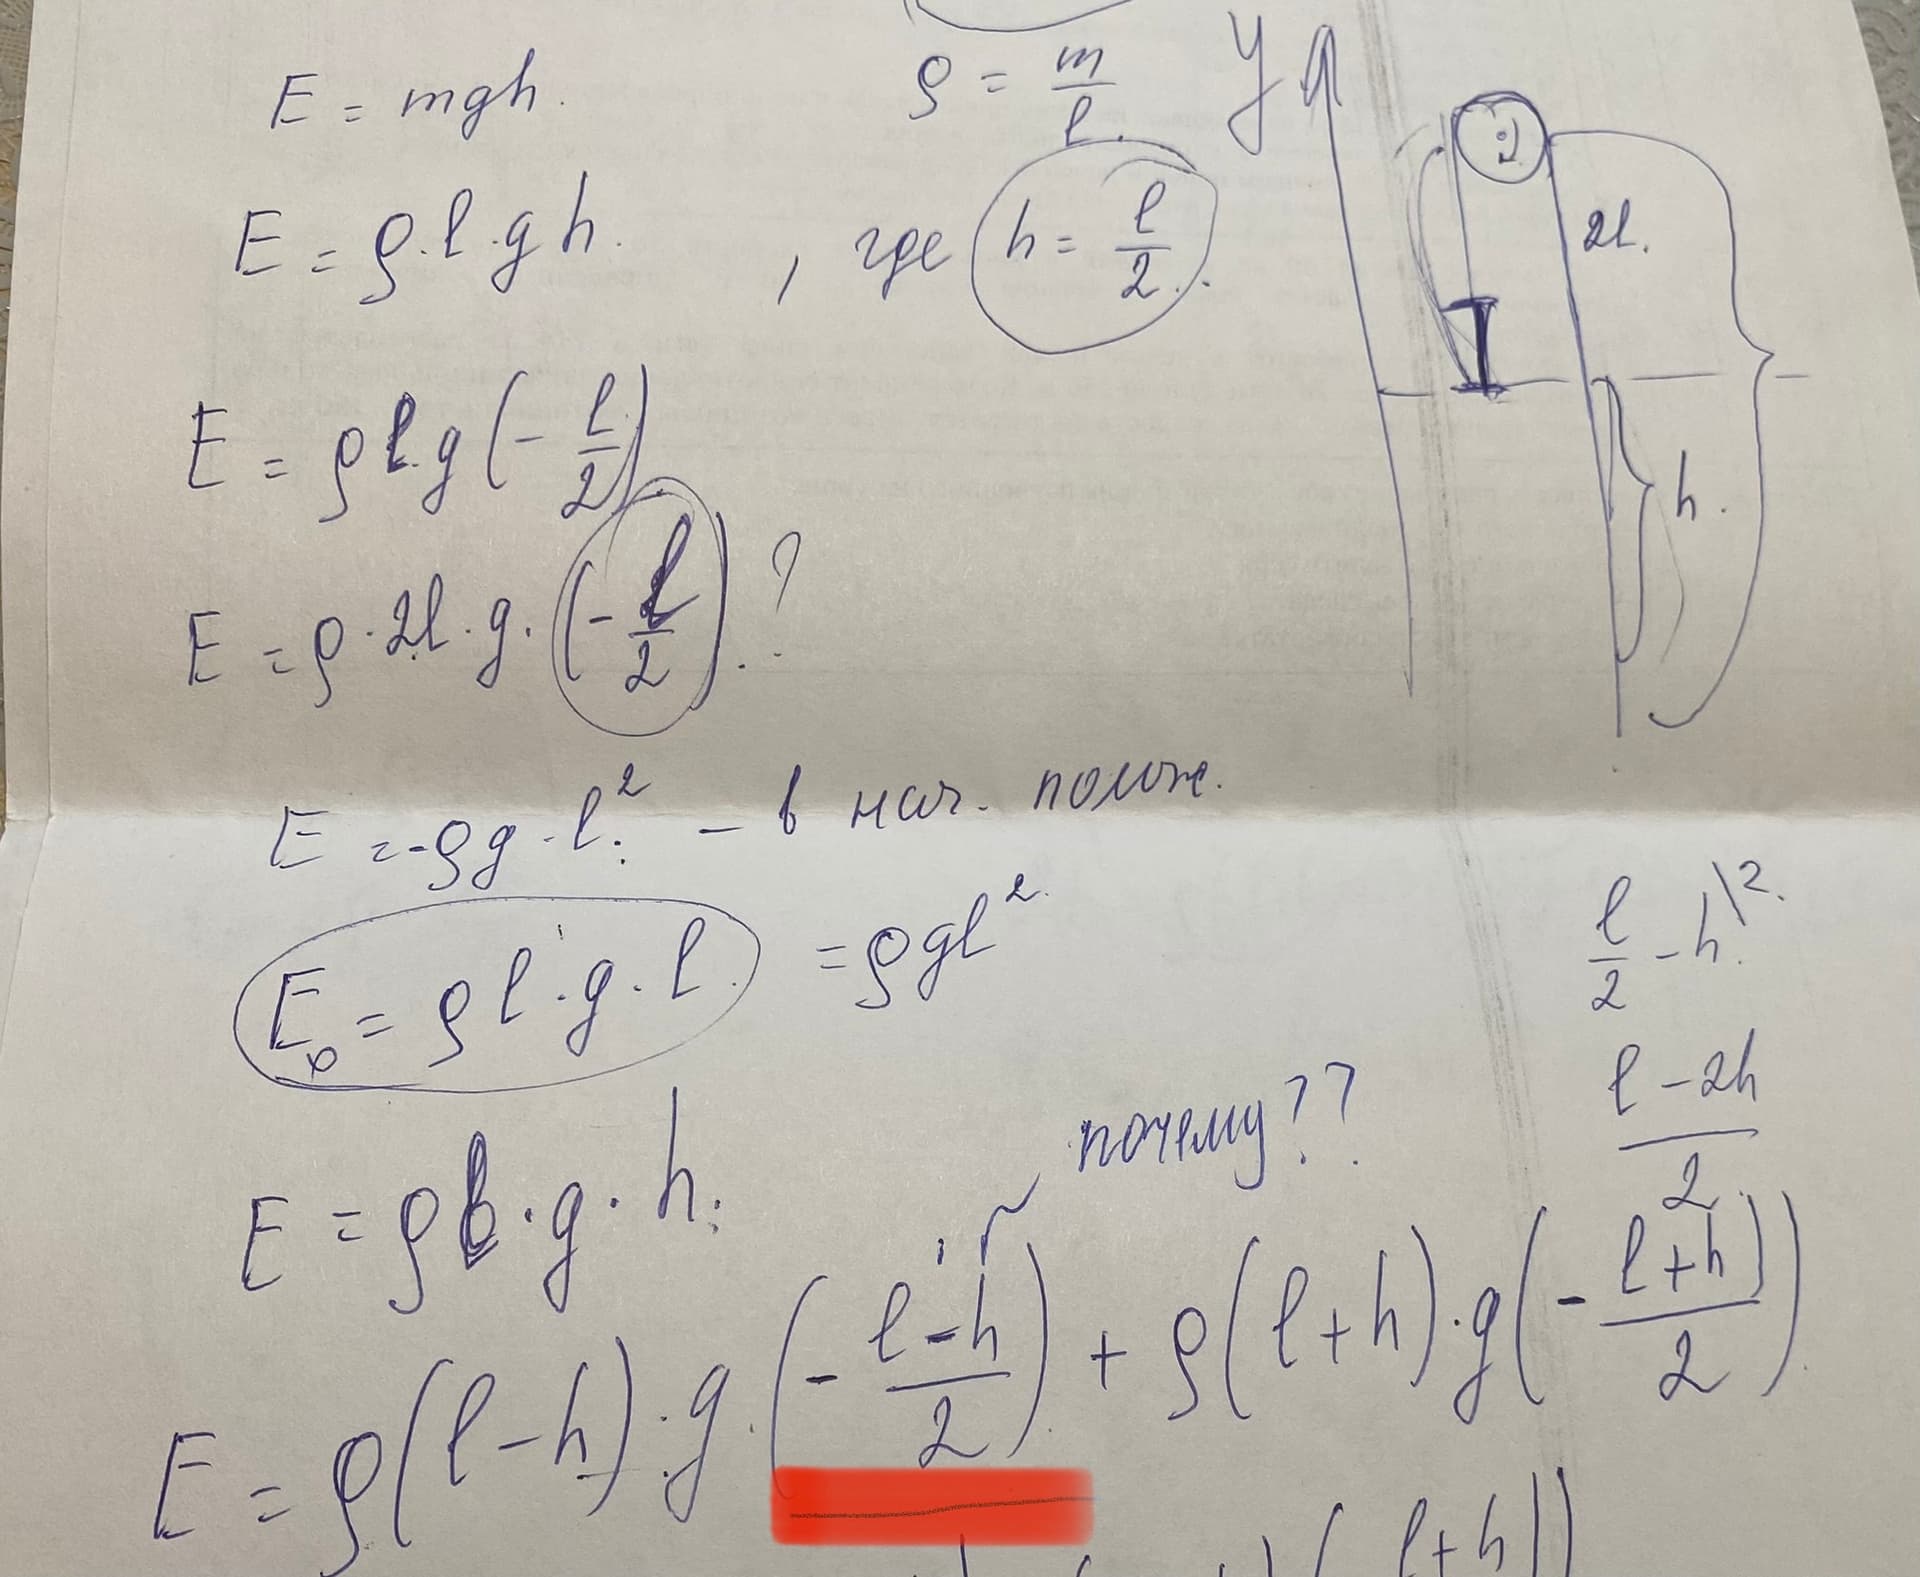 E = mgh.
ρ = m/l.
y
2l.
E = ρ·l·g h. , где h = l/2.
E = ρlg(-l/2)
h.
E = ρ·2l·g·(-l/2). ?
E = -ρg·l². - в нач. полож.
E₀ = ρl·g·l. = ρgl².
l/2 - h\².
(l-2h)/2
E = ρl·g·h.
почему??
E = ρ(l-h)·g·(-(l-h)/2) + ρ(l+h)·g(-(l+h)/2)
(l+h))